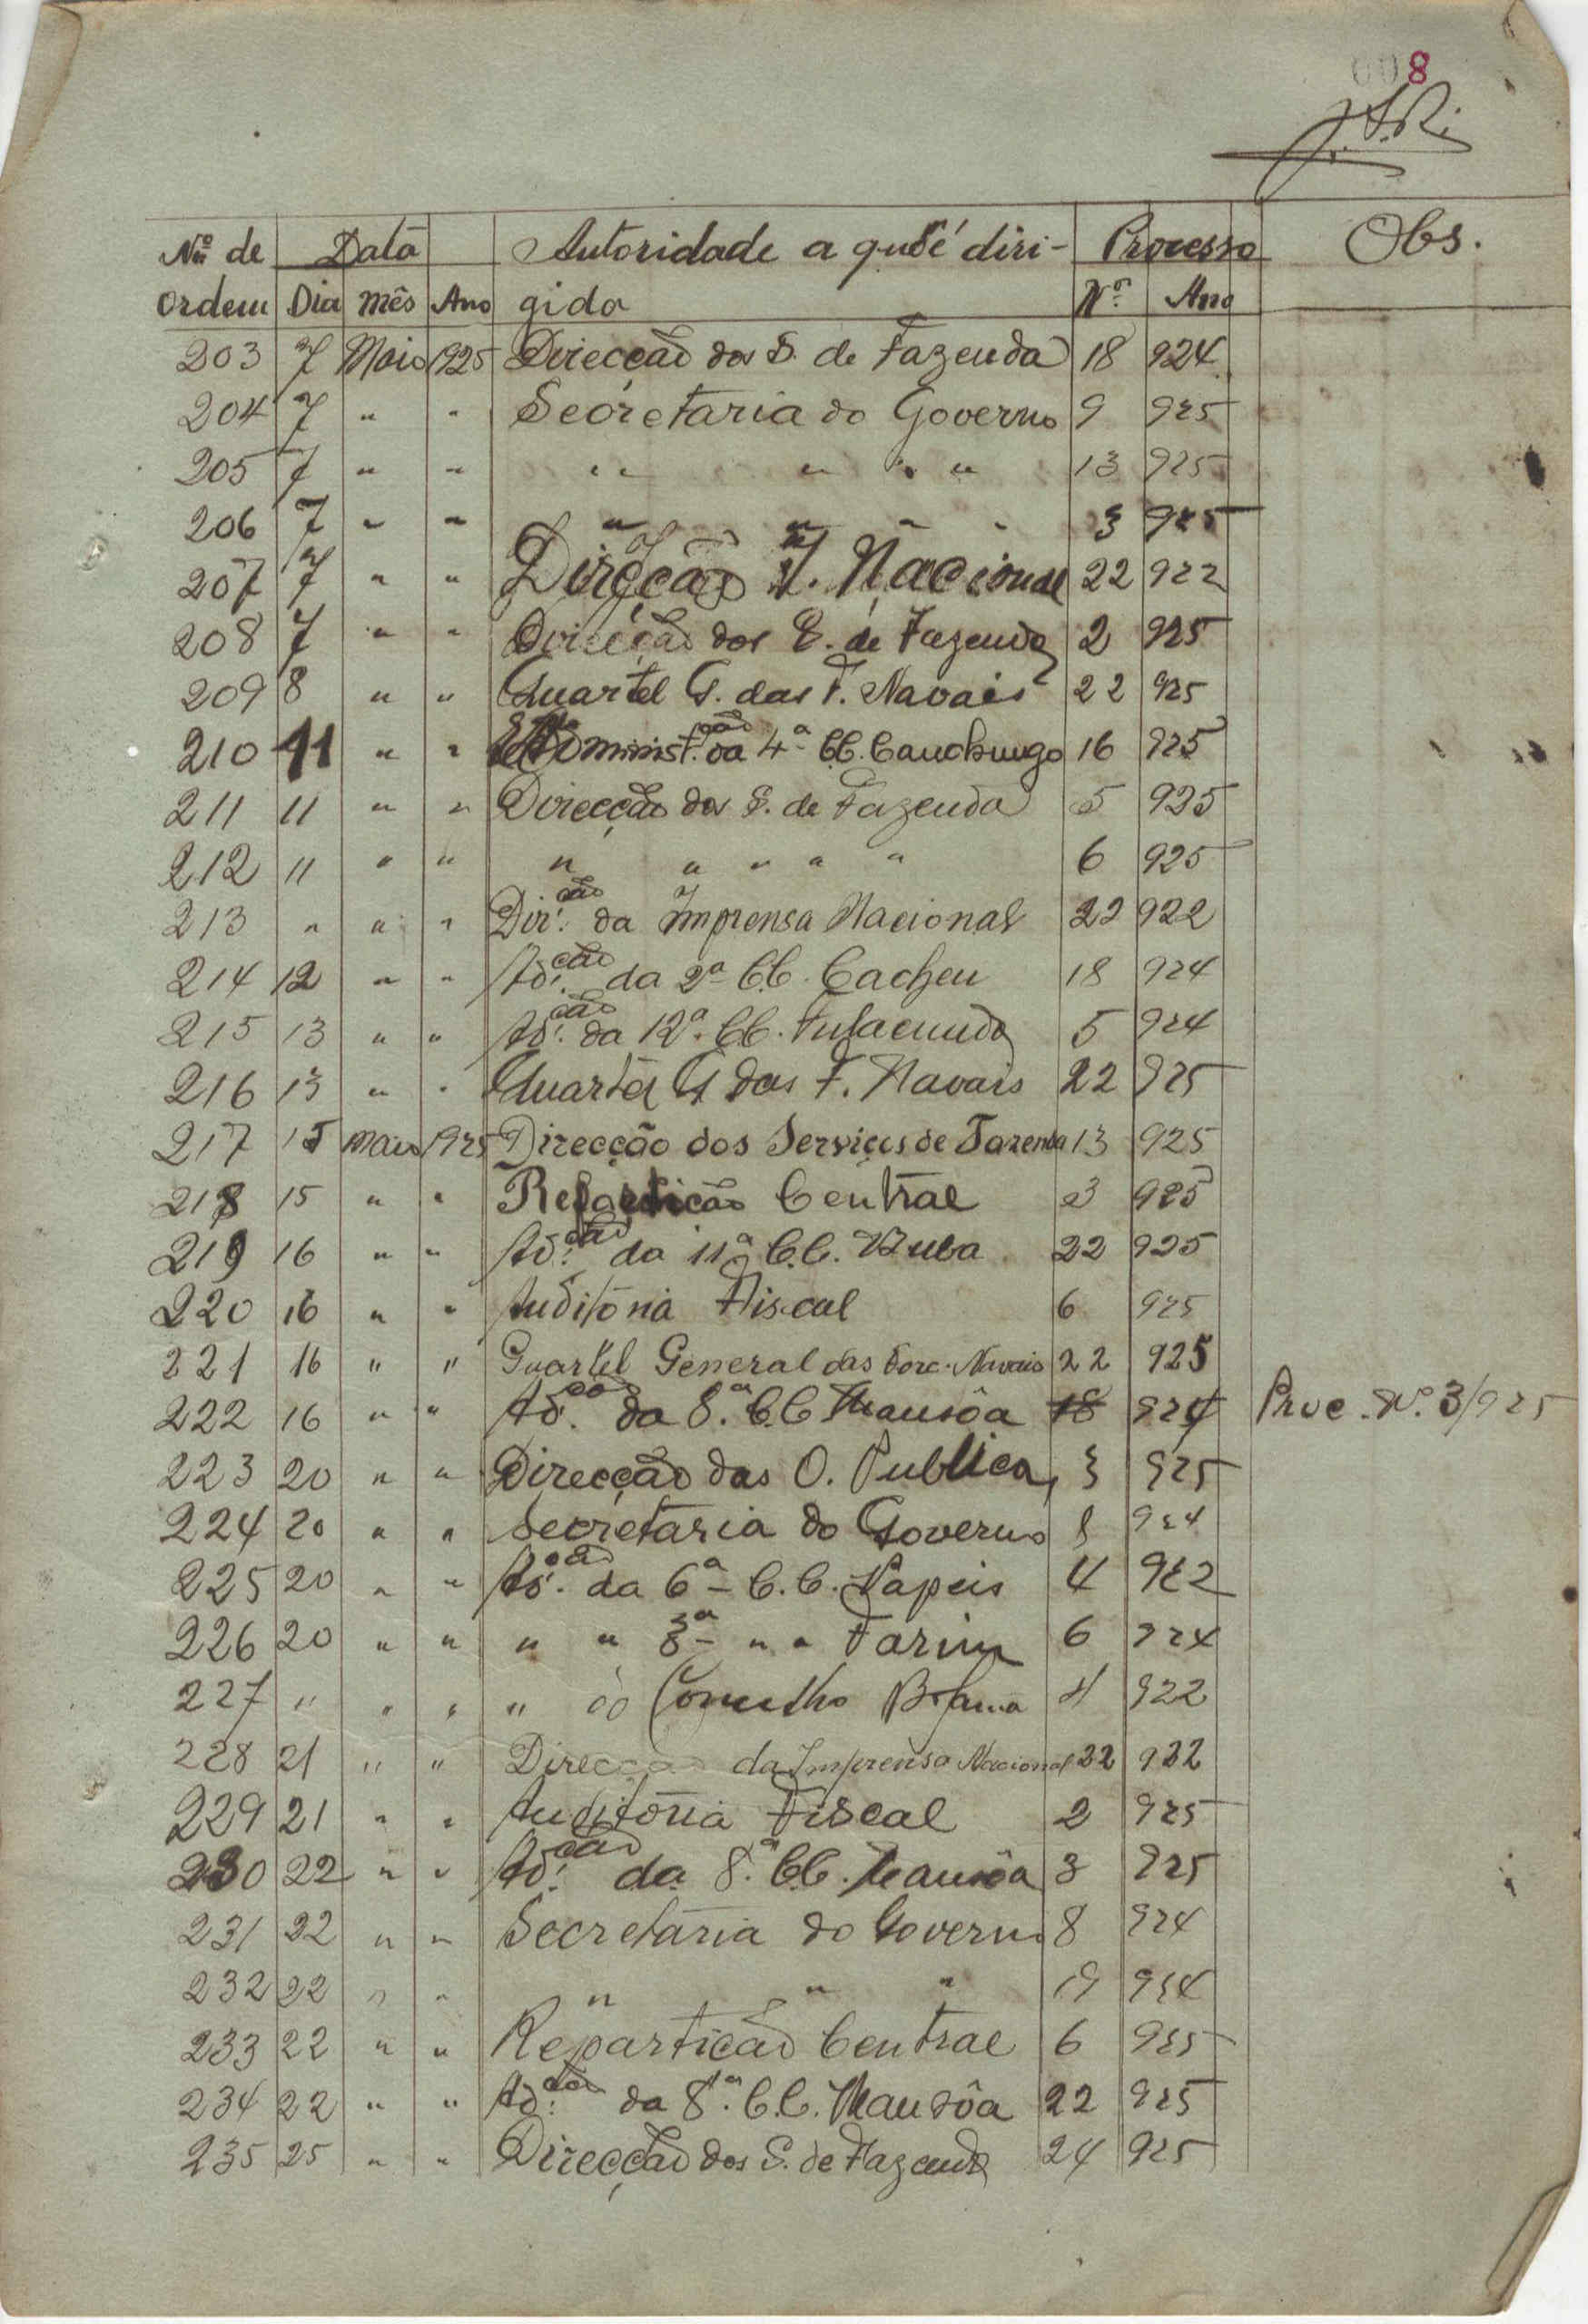 008
Nº de Data Autoridade a que é diri- Processo Obs.
Ordem Dia Mês Ano gida Nº Ano
203 7 Maio 1925 Direcção dos S. de Fazenda 18 924
204 7 " " Secretaria do Governo 9 925
205 7 " " " " " " 13 925
206 7 " " " " " " 3 925
207 7 " " Direcção I. Nacional 22 922
208 7 " " Direcção dos S. de Fazenda 2 925
209 8 " " Quartel G. das F. Navais 22 925
210 11 " " Administ.ção da 4ª C.C. Canchungo 16 925
211 11 " " Direcção dos S. de Fazenda 5 925
212 11 " " " " " " " 6 925
213 " " " Dir.ção da Imprensa Nacional 22 922
214 12 " " Ad.ção da 2ª C.C. Cacheu 18 924
215 13 " " Ad.ção da 12ª C.C. Fulacunda 5 924
216 13 " " Quartel G das F. Navais 22 925
217 15 Maio 1925 Direcção dos Serviços de Fazenda 13 925
218 15 " " Repartição Central 3 925
219 16 " " Ad.ção da 11ª C.C. Buba 22 925
220 16 " " Auditoria Fiscal 6 925
221 16 " " Quartel General das Forc. Navais 22 925
222 16 " " Ad.ção da 8.ª C.C Mansôa 18 924 Proc. Nº. 3/925
223 20 " " Direcção das O. Publicas 3 925
224 20 " " Secretaria do Governo 8 924
225 20 " " Ad.ção da 6ª C.C. Papeis 4 922
226 20 " " " " 3ª " " Farim 6 924
227 " " " " do Concelho Bolama 4 922
228 21 " " Direcção da Imprensa Nacional 22 922
229 21 " " Auditoria Fiscal 2 925
230 22 " " Ad.ção da 8.ª C.C. Mansôa 3 925
231 22 " " Secretaria do Governo 8 924
232 22 " " " " " 19 924
233 22 " " Repartição Central 6 925
234 22 " " Ad.ção da 8.ª C.C. Mansôa 22 925
235 25 " " Direcção dos S. de Fazenda 24 925